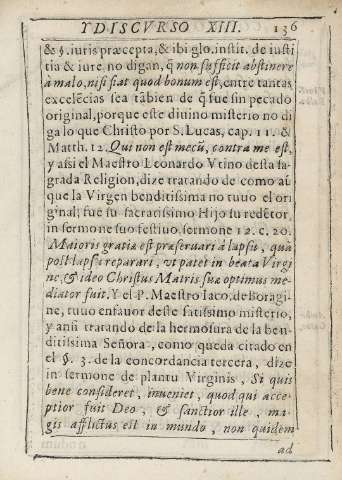 Y DISCVRSO XIII. 136
& §. iuris præcepta, & ibi glo. instit. de iusti
tia & iure no digan, q̃ non sufficit abstinere
à malo, nisi fiat quod bonum est, entre tantas
excelẽcias sea tãbien de q̃ fue sin pecado
original, porque este diuino misterio no di
ga lo que Christo por S. Lucas, cap. 11. &
Matth. 12. Qui non est mecũ, contra me est,
y assi el Maestro Leonardo Vtino desta sa-
grada Religion, dize tratando de como aũ
que la Virgen benditissima no tuuo el ori
ginal; fue su sacratissimo Hijo su redẽtor,
in sermone suo festiuo, sermone 12. c. 20.
Maioris gratiæ est præseruari à lapsu, quã
post lapsũ reparari, vt patet in beata Virgi
ne, & ideo Christus Matris suæ optimus me-
diator fuit. Y el P. Maestro Iaco. de Boragi-
ne, tuuo en fauor deste satissimo misterio,
y ansi tratando de la hermosura de la ben
ditissima Señora, como queda citado en
el §. 3. de la concordancia tercera, dize
in sermone de plantu Virginis, Si quis
bene consideret, inueniet, quod qui acce-
ptior fuit Deo, & sanctior ille, ma-
gis afflictus est in mundo, non quidem
ad